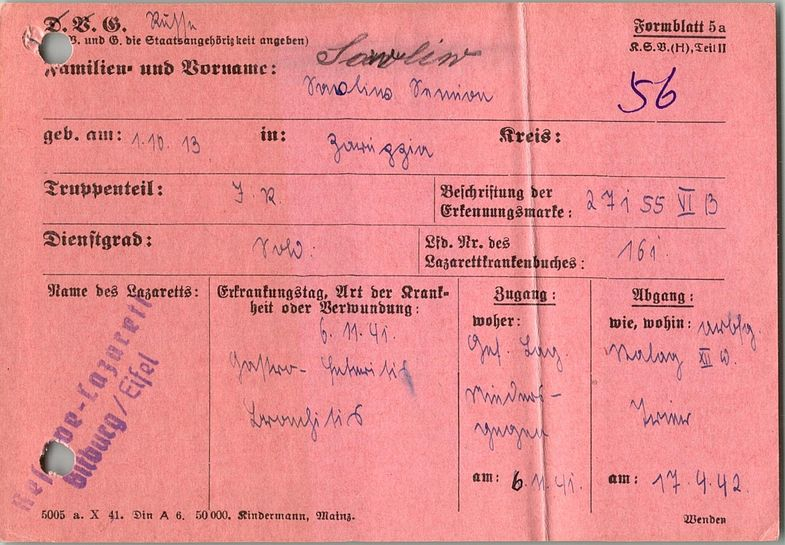 D. V. G. Russe
V. und G. die Staatsangehörigkeit angeben)
Formblatt 5a
K.S.V.(H), Teil II
Sawlin
Familien- und Vorname:
Semion
56
geb. am: 1.10.13 in: Kreis:
Truppenteil: J. R.
Beschriftung der
Erkennungsmarke: 27155 VI B
Dienstgrad: Sold.
Lfd. Nr. des
Lazarettkrankenbuches: 161
Name des Lazaretts:
Reserve-Lazarett
Bitburg/Eifel
Erkrankungstag, Art der Krank-
heit oder Verwundung:
6. 11. 41.
Gastro-Enteritis
Bronchitis
Zugang:
woher:
Gef. Lag.
Nieders-
gegen
am: 6.11.41.
Abgang:
wie, wohin: arbfg.
Stalag XII D.
Trier
am: 17.4.42.
5005 a. X 41. Din A 6. 50000. Kindermann, Mainz.
Wenden